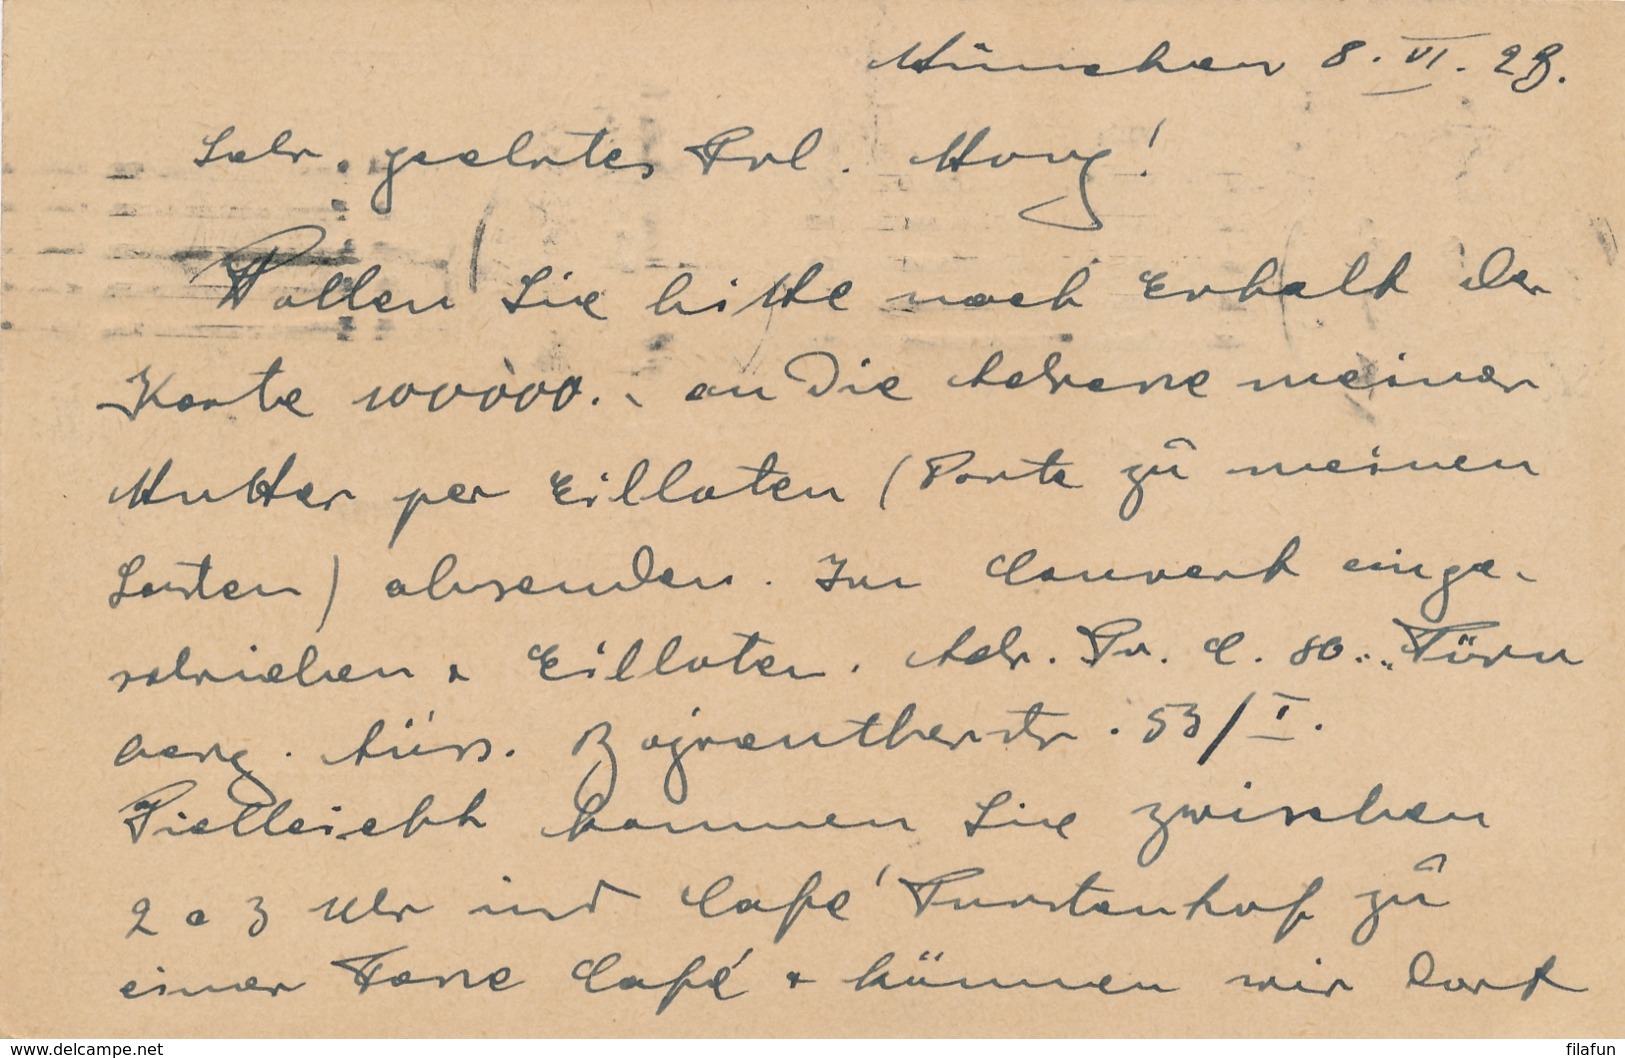 München 8. VI. 23.
Sehr geehrtes Frl. Moug!
Wollen Sie bitte nach Erhalt der
Karte 100000.- an die Adresse meiner
Mutter per Eilboten (Porto zu meinen
Lasten) absenden. Im Couvert einge-
schrieben + Eilboten. Adr. Fr. C. 80. "Türn
berg. Äuss. Bayreutherstr. 53/I.
Vielleicht kommen Sie zwischen
2 & 3 Uhr ins Café Fürstenhof zu
einer Tasse Café + können wir dort
www.delcampe.net
filafun